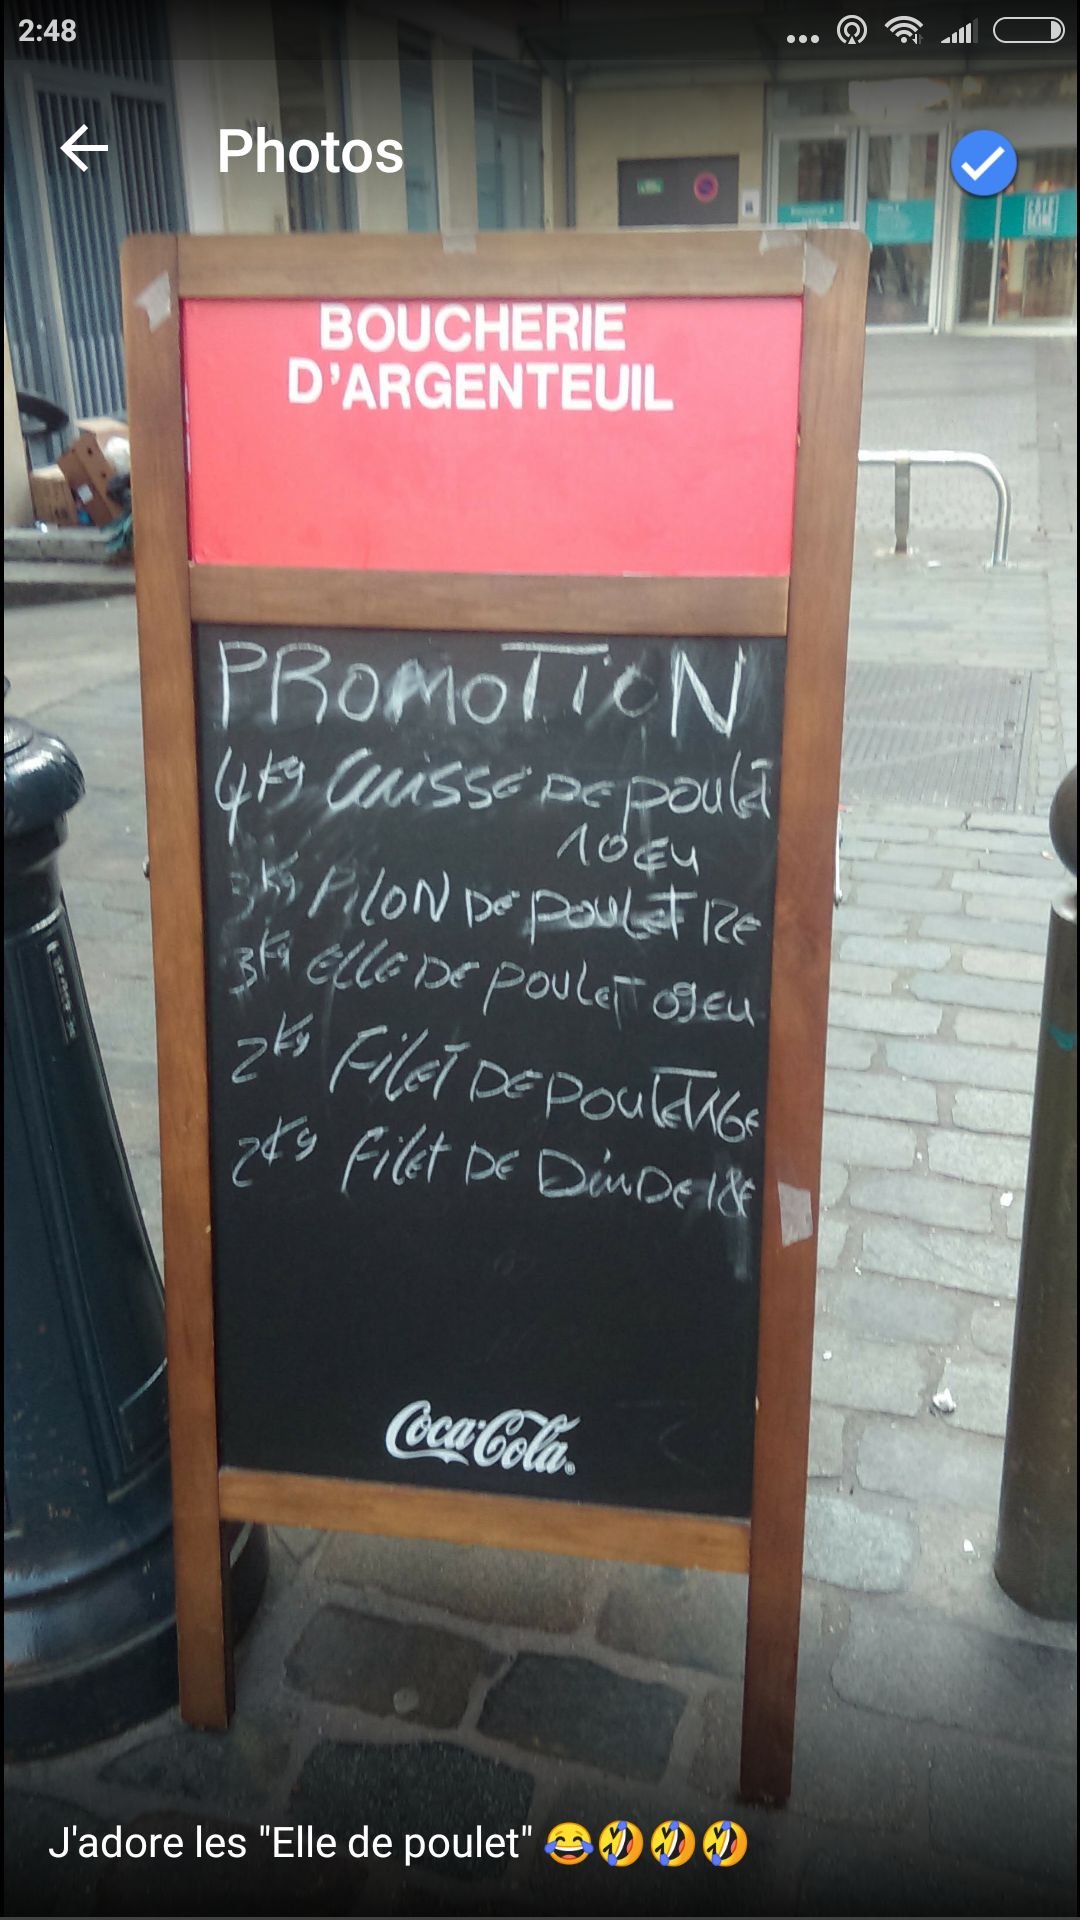 2:48
Photos
BOUCHERIE
D'ARGENTEUIL
PROMOTION
4Kg CUISSE DE POULET
10EU
3Kg PILON DE POULET 12E
3Kg ELLE DE POULET 09EU
2Kg FILET DE POULET 16E
2Kg FILET DE DINDE 18E
Coca-Cola
J'adore les "Elle de poulet" 😂🤣🤣🤣